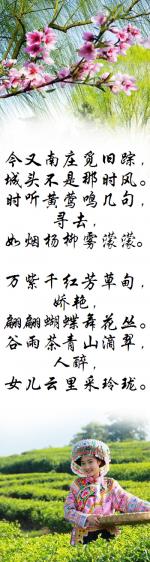 今又南庄觅旧踪，
城头不是那时风。
时听黄莺鸣几句，
寻去，
如烟杨柳雾濛濛。
万紫千红芳草甸，
娇艳，
翩翩蝴蝶舞花丛。
谷雨茶青山滴翠，
人醉，
女儿云里采玲珑。